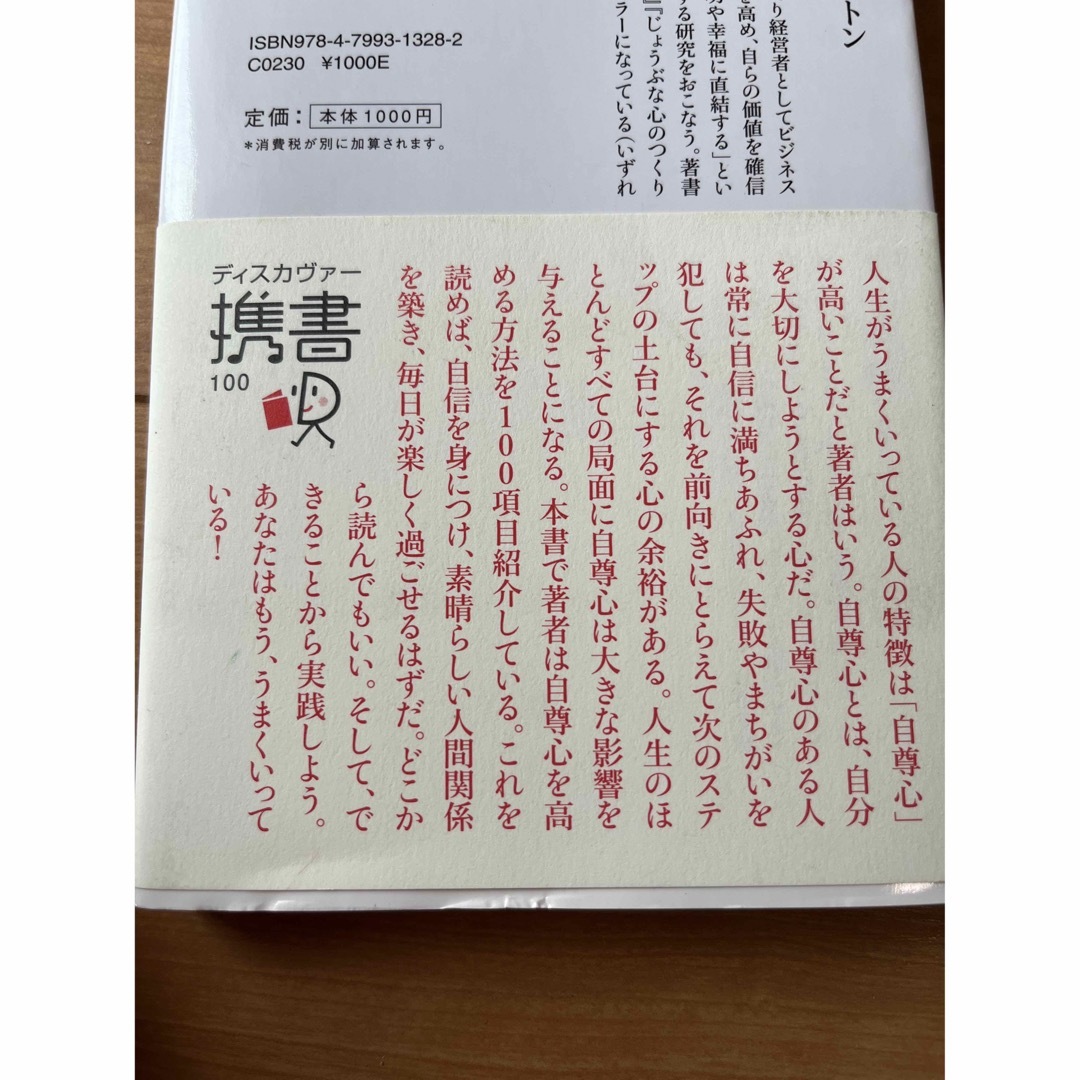 ISBN978-4-7993-1328-2
C0230 ¥1000E
定価：本体1000円
＊消費税が別に加算されます。
トン
り経営者としてビジネス
を高め、自らの価値を確信
功や幸福に直結する」とい
する研究をおこなう。著書
『じょうぶな心のつくり
ラーになっている（いずれ
人生がうまくいっている人の特徴は「自尊心」
が高いことだと著者はいう。自尊心とは、自分
を大切にしようとする心だ。自尊心のある人
は常に自信に満ちあふれ、失敗やまちがいを
犯しても、それを前向きにとらえて次のステ
ップの土台にする心の余裕がある。人生のほ
とんどすべての局面に自尊心は大きな影響を
与えることになる。本書で著者は自尊心を高
める方法を100項目紹介している。これを
読めば、自信を身につけ、素晴らしい人間関係
を築き、毎日が楽しく過ごせるはずだ。どこか
ら読んでもいい。そして、で
きることから実践しよう。
あなたはもう、うまくいって
いる！
ディスカヴァー
携書
100